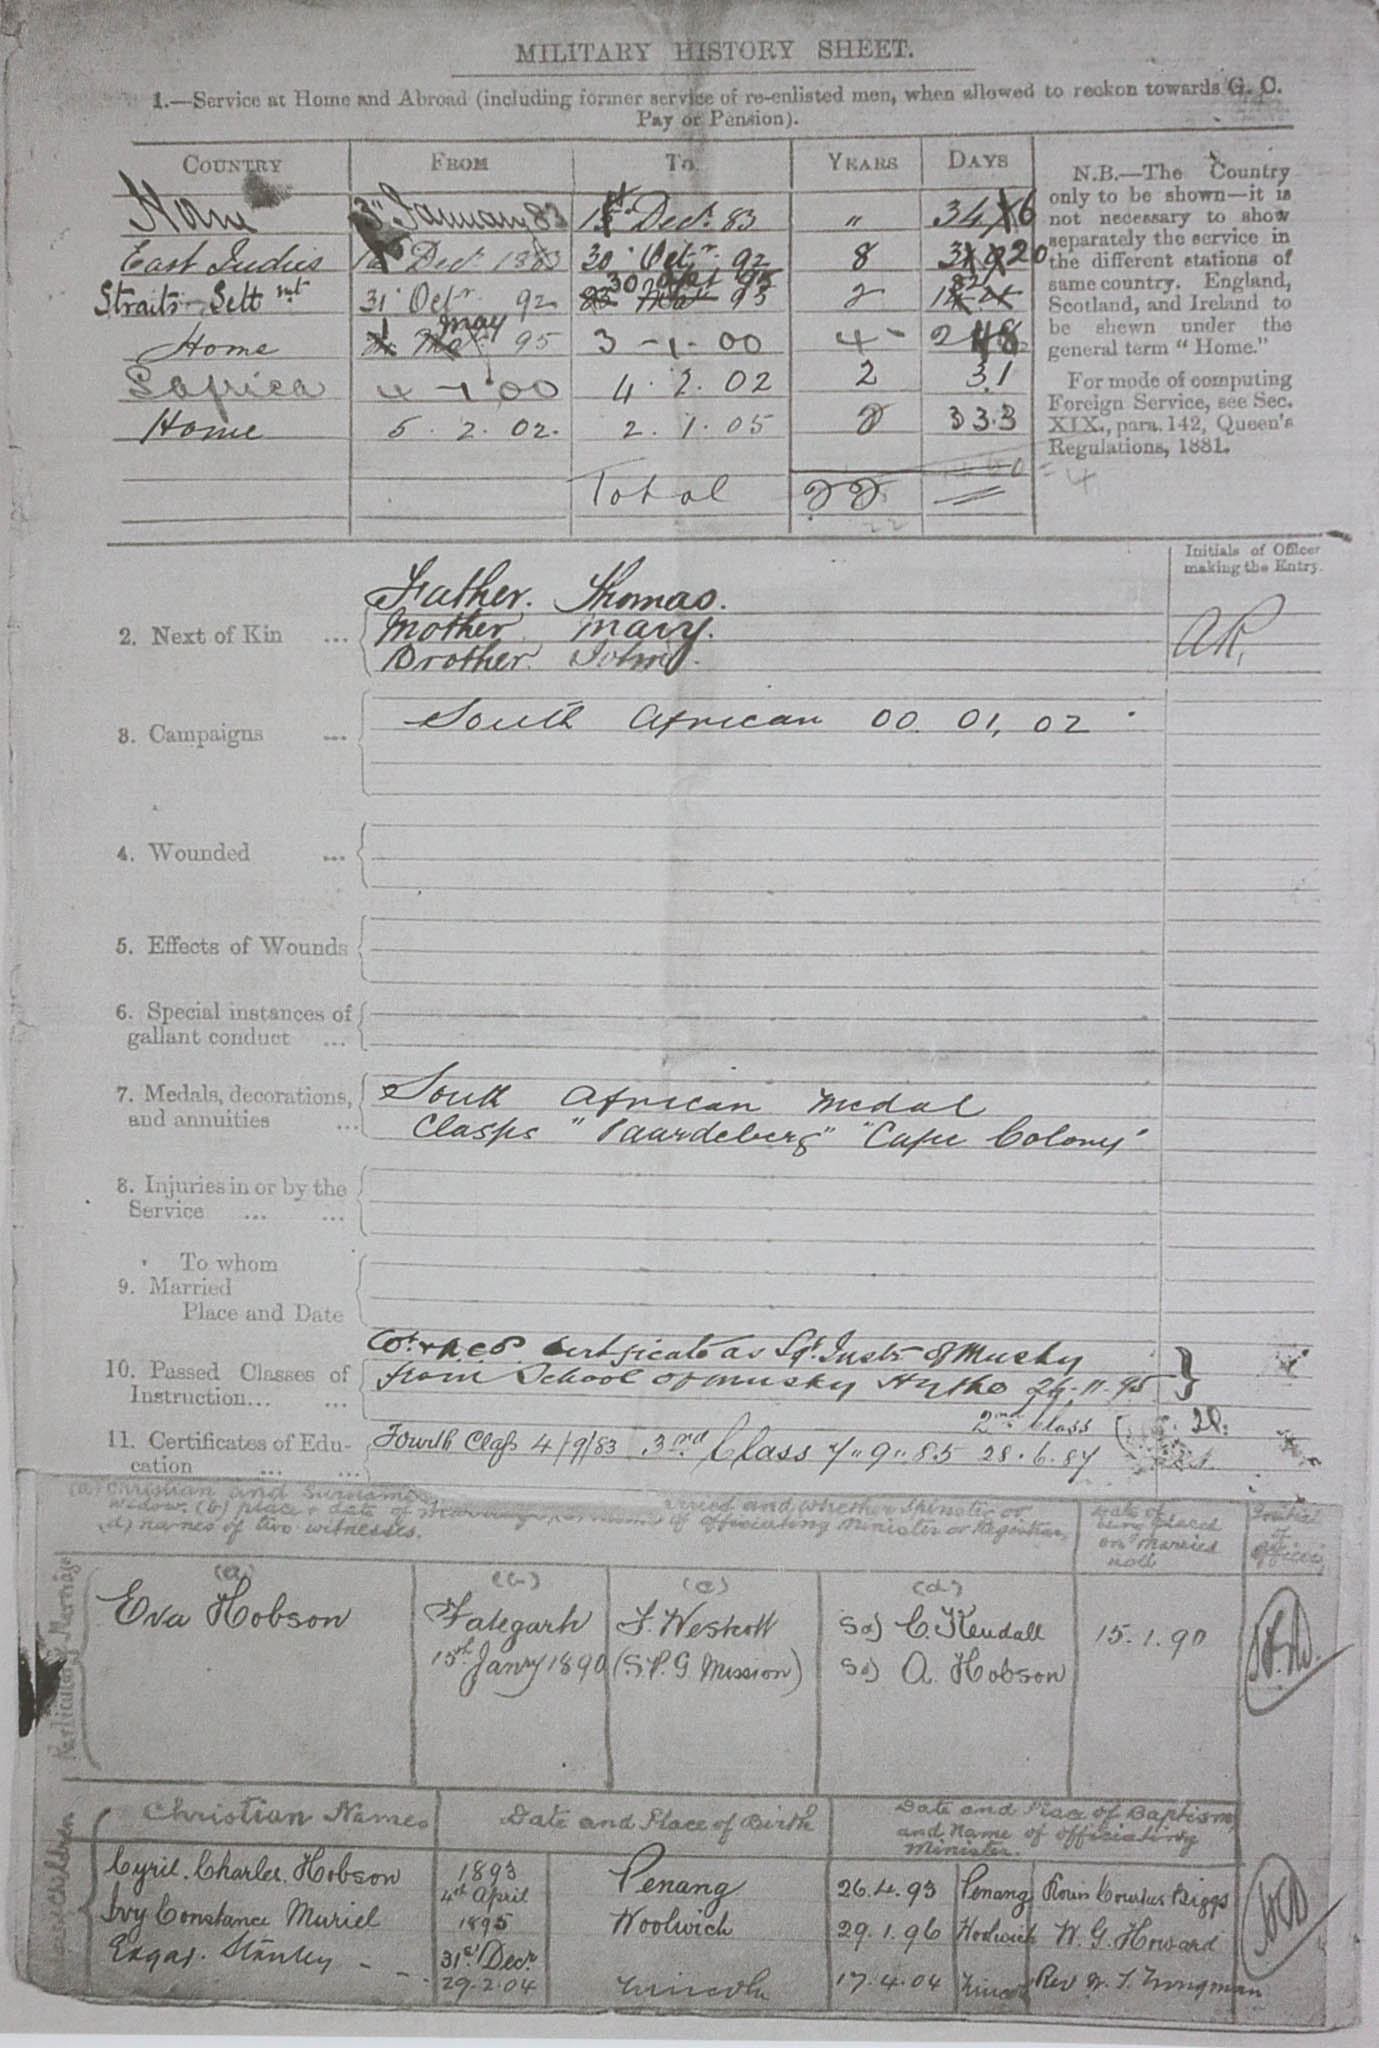 MILITARY HISTORY SHEET.
1.—Service at Home and Abroad (including former service of re-enlisted men, when allowed to reckon towards G. C.
Pay or Pension).
COUNTRY FROM To YEARS DAYS
Home 3rd January 83 Decr. 83 "
East Indies Decr 1883 30 Octr. 92 8
Straits Settmt 31 Octr. 92 30 April 95 2
Home 1 May 95 3-1-00 4 248
S Africa 4-1-00 4.2.02 2 31
Home 5.2.02. 2.1.05 2 333
Total 22
N.B.—The Country
only to be shown—it is
not necessary to show
separately the service in
the different stations of
same country. England,
Scotland, and Ireland to
be shewn under the
general term "Home."
For mode of computing
Foreign Service, see Sec.
XIX., para. 142, Queen's
Regulations, 1881.
Initials of Officer
making the Entry.
2. Next of Kin ...
Father. Thomas.
Mother Mary.
Brother. John.
3. Campaigns ...
South African 00. 01, 02
4. Wounded ...
5. Effects of Wounds
6. Special instances of
gallant conduct ...
7. Medals, decorations,
and annuities ...
South African Medal
Clasps "Paardeberg" "Cape Colony"
8. Injuries in or by the
Service ... ...
To whom
9. Married
Place and Date
10. Passed Classes of
Instruction... ...
certificate as Sgt. Instr of Musky
from School of Musky Hythe 26-11-95
11. Certificates of Edu-
cation ... ...
2nd Class
Fourth Class 4/9/83 3rd Class 7"9"85 28.6.87
(a) Christian and Surname and whether Spinster or
Widow, (b) place & date of Marriage, of officiating Minister or Registrar,
(d) names of two witnesses.
Date of
being placed
on Married
roll
Initial
of
Officer
Particulars of Marriage
(a) (b) (c) (d)
Eva Hobson Fategarh F. Westcott Sd) C. Kendall 15.1.90
15th Janry 1890 (S.P.G Mission) Sd) A. Hobson
Children
Christian Names Date and Place of Birth Date and Place of Baptism,
and Name of officiating
Minister.
Cyril. Charles. Hobson 1893 4th April Penang 26.4.93 Penang
Ivy Constance Muriel 1895 31st Decr Woolwich 29.1.96 Woolwich W. G. Howard
Edgar. Stanley 29.2.04 Lincoln 17.4.04 Lincoln Rev